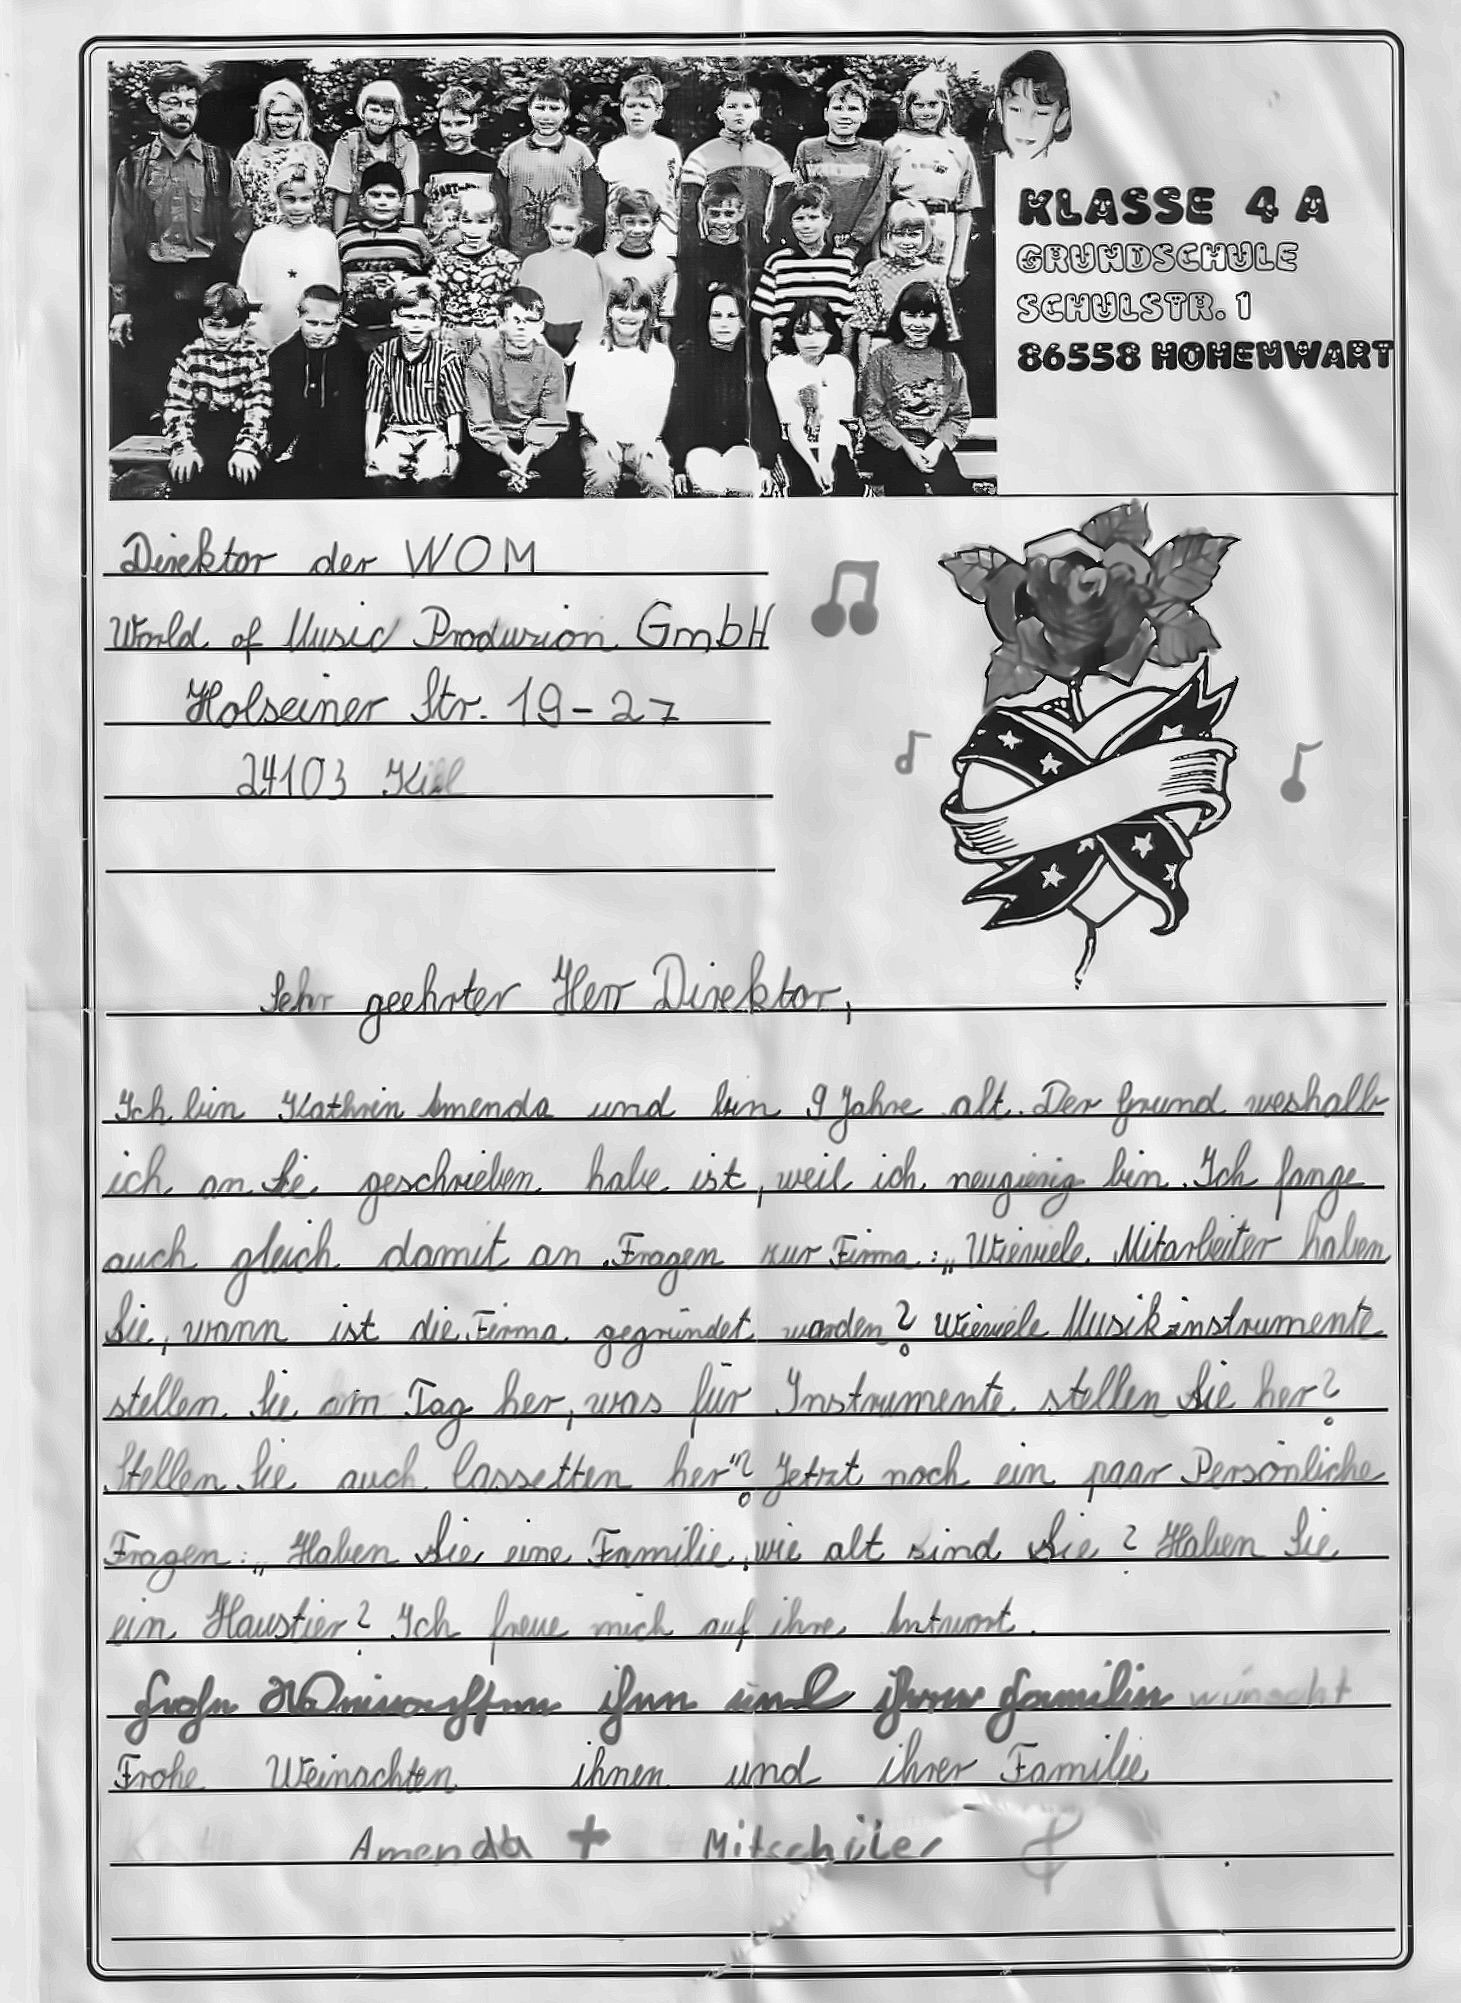 KLASSE 4 A
GRUNDSCHULE
SCHULSTR. 1
86558 HOHENWART
Direktor der WOM
World of Music Produzion GmbH
Holseiner Str. 19-27
24103 Kiel
Sehr geehrter Herr Direktor,
Ich bin Kathrin Amenda und bin 9 Jahre alt. Der Grund weshalb
ich an Sie geschrieben habe ist, weil ich neugierig bin. Ich fange
auch gleich damit an. Fragen zur Firma: „Wieviele Mitarbeiter haben
Sie, wann ist die Firma gegründet worden? Wieviele Musikinstrumente
stellen Sie am Tag her, was für Instrumente stellen Sie her?
Stellen Sie auch Cassetten her"? Jetzt noch ein paar Persönliche
Fragen: „Haben Sie eine Familie, wie alt sind Sie? Haben Sie
ein Haustier? Ich freue mich auf ihre Antwort.
Frohe ihnen und ihrer Familie wünscht
Frohe Weinachten ihnen und ihrer Familie
Amenda + Mitschüler